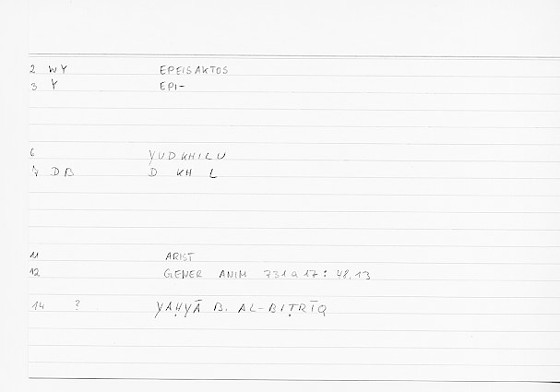 2 WY EPEISAKTOS
3 Y EPI-
6 YUDKHILU
7 DB D KH L
11 ARIST
12 GENER ANIM 731a17: 48,13
14 ? YAḤYĀ B. AL-BIṬRĪQ